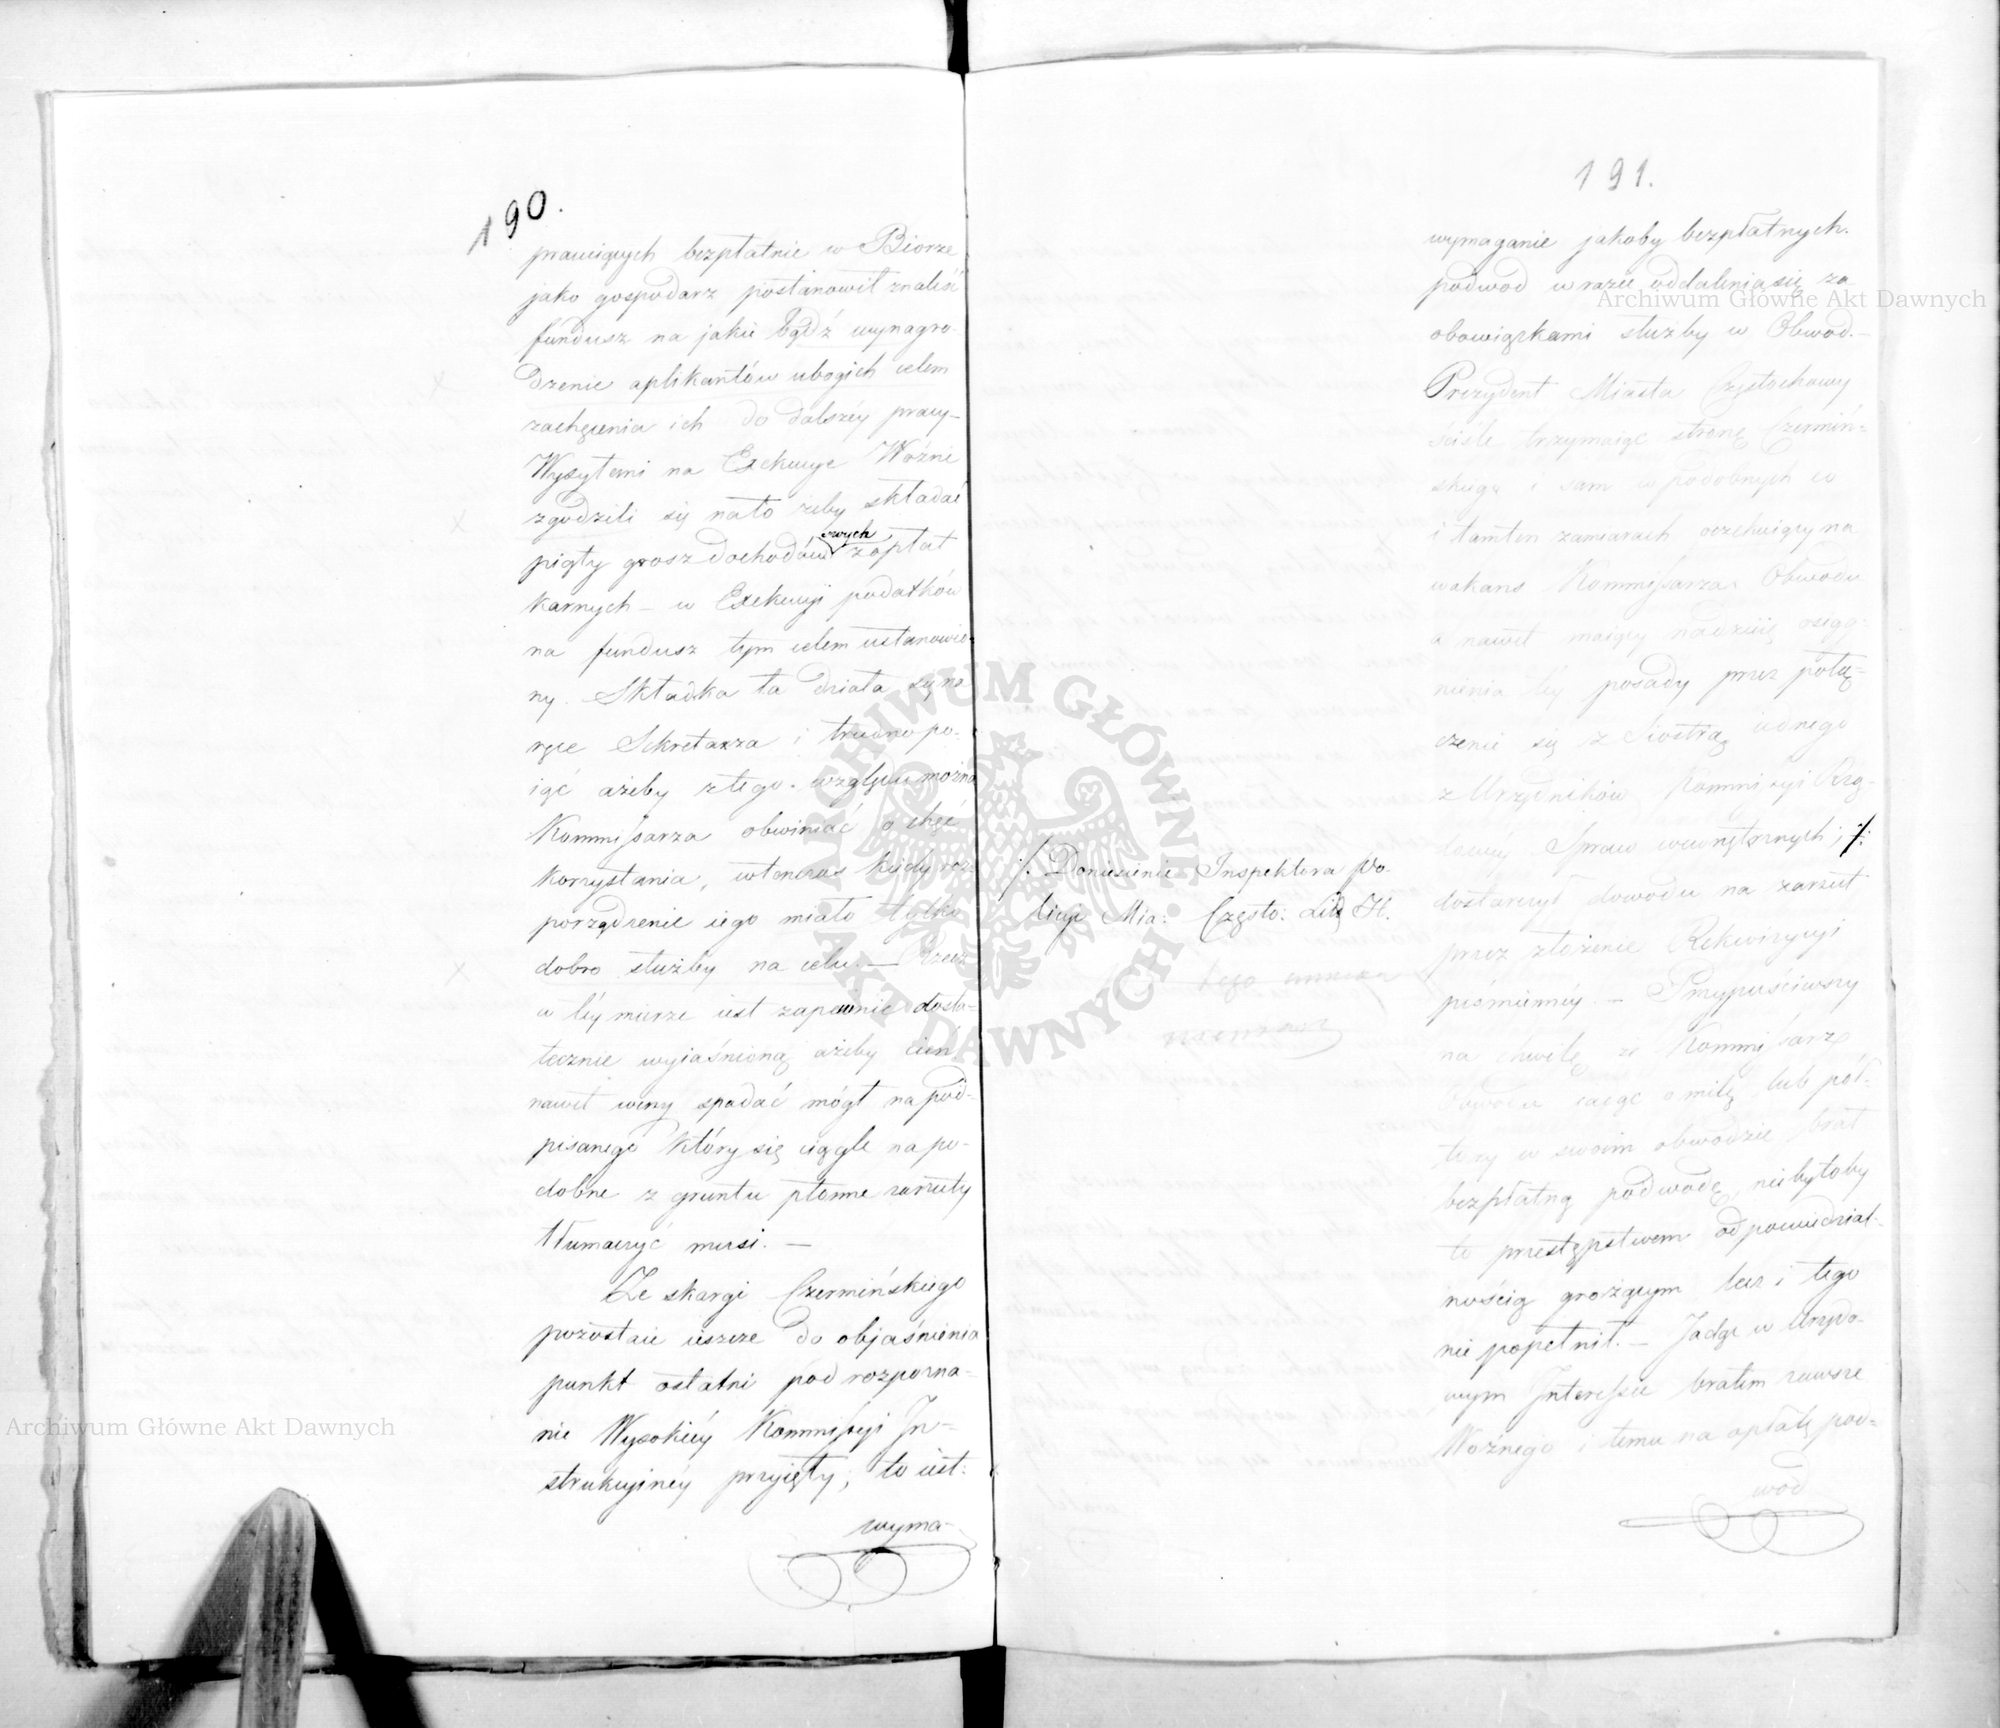 190.
pracuiących bezpłatnie w Biorze
jako gospodarz postanowił znaleść
fundusz na jakie bądź wynagro-
dzenie aplikantów ubogich celem
zachęcenia ich do dalszéy pracy-
Wysyłani na Exekucye Woźni
zgodzili się nato żeby składać
piąty grosz dochodów swych zapłat
karnych - w Exekucyi podatków
na fundusz tym celem ustanowio-
ny. Składka ta działa się na
ręce Sekretarza i trudno po-
iąć ażeby z tego względu można
Kommissarza obwiniać o chęć
korzystania, wtenczas kiedy roz-
porządzenie iego miało tylko
dobro służby na celu. — Rzecz
w téy mierze iest zapewnie dosta-
tecznie wyiaśnioną ażeby cień
nawet winy spadać mógł na pod-
pisanego który się ciągle na po-
dobne z gruntu płonne zarzuty
tłumaczyć musi. —
Ze skargi Czermińskiego
pozostaie ieszcze do objaśnienia
punkt ostatni pod rozpozna-
nie Wysokiéy Kommissyi In-
strukcyinéy przyięty; to iest.
wyma-
191.
wymaganie jakoby bezpłatnych
podwod w razie oddalenia się za
obowiązkami służby w Obwod. —
Prezydent Miasta Częstochowy
ściśle trzymaiąc stronę Czermiń-
skiego i sam w podobnych co
i tamten zamiarach oczekuiący na
wakans Kommissarza Obwodu
a nawet maiący nadzieię osiąg-
nienia téy posady przez połą-
czenie się z Siostrą iednego
z Urzędników Kommissyi Rzą-
dowéy Spraw wewnętrznych; ·/:
dostarczył dowodu na zarzut
przez złożenie Rekwizycyi
piśmiennéy. — Przypuściwszy
na chwilę że Kommissarz
Obwodu iadąc o milę lub pół-
tory w swoim obwodzie brał
bezpłatną podwodę, niebyłoby
to przestępstwem odpowiedzial-
nością grożącym lecz i tego
nie popełnił. — Jadąc w Urzędo-
wym Interessie brałem zawsze
Woźnego i temu na opłatę pod-
wod
·/. Doniesienie Inspektora Po-
licyi Mia: Często: Lit H.
Archiwum Główne Akt Dawnych
Archiwum Główne Akt Dawnych
ARCHIWUM GŁÓWNE AKT DAWNYCH